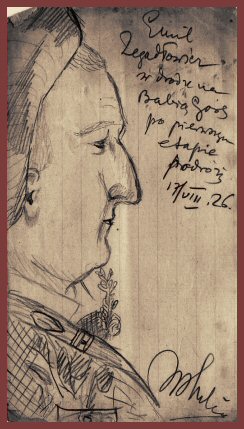 Emil
Zegadłowicz
w drodze na
Babią Górę
po pierwszym
etapie
podróży
17/VIII.26.